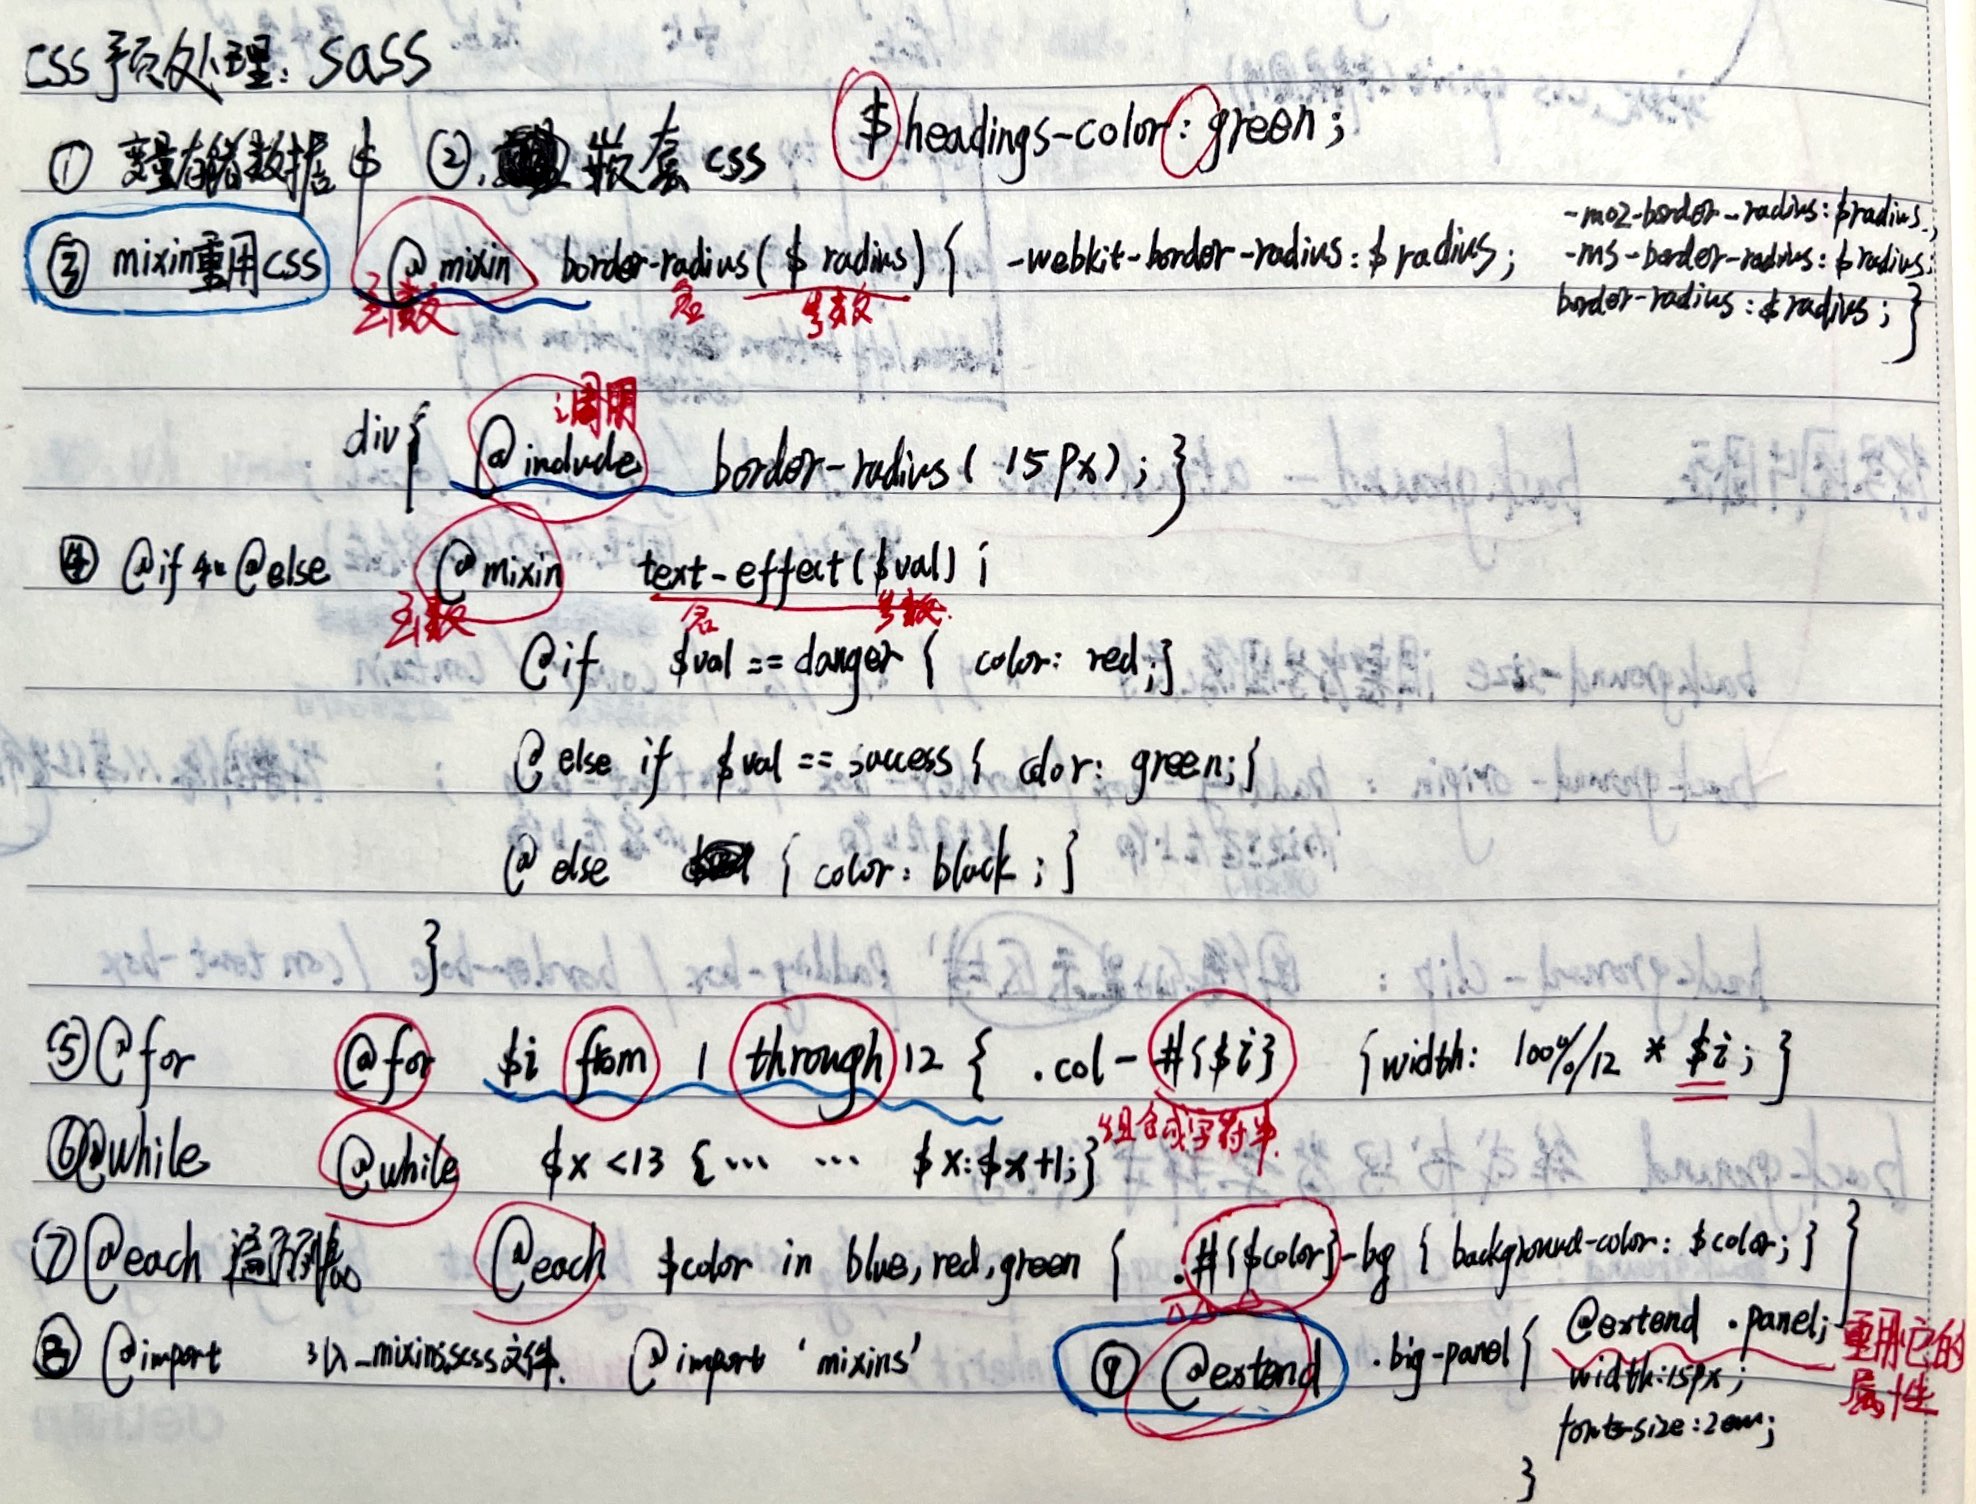 css预处理：sass
① 变量存储数据 $ ②. 嵌套css $headings-color: green;
③ mixin重用css @mixin border-radius($ radius) { -webkit-border-radius: $ radius; -moz-border-radius: $radius;
-ms-border-radius: $radius;
border-radius: $ radius; }
函数 名 参数
调用
div { @include border-radius( 15px); }
④ @if 和 @else @mixin text-effect($val) {
函数 名 参数
@if $val == danger { color: red; }
@else if $val == success { color: green; }
@else { color: black; }
}
⑤ @for @for $i from 1 through 12 { .col-#{$i} {width: 100%/12 * $i; }
组合成字符串
⑥ @while @while $x <13 {… … $x: $x+1;}
⑦ @each 遍历 @each $color in blue, red, green { .#{$color}-bg { background-color: $color; } }
⑧ @import 引入 _mixins.scss文件. @import 'mixins' ⑨ @extend .big-panel { @extend .panel; 重用它的
width:15px; 属性
font-size: 2em;
}